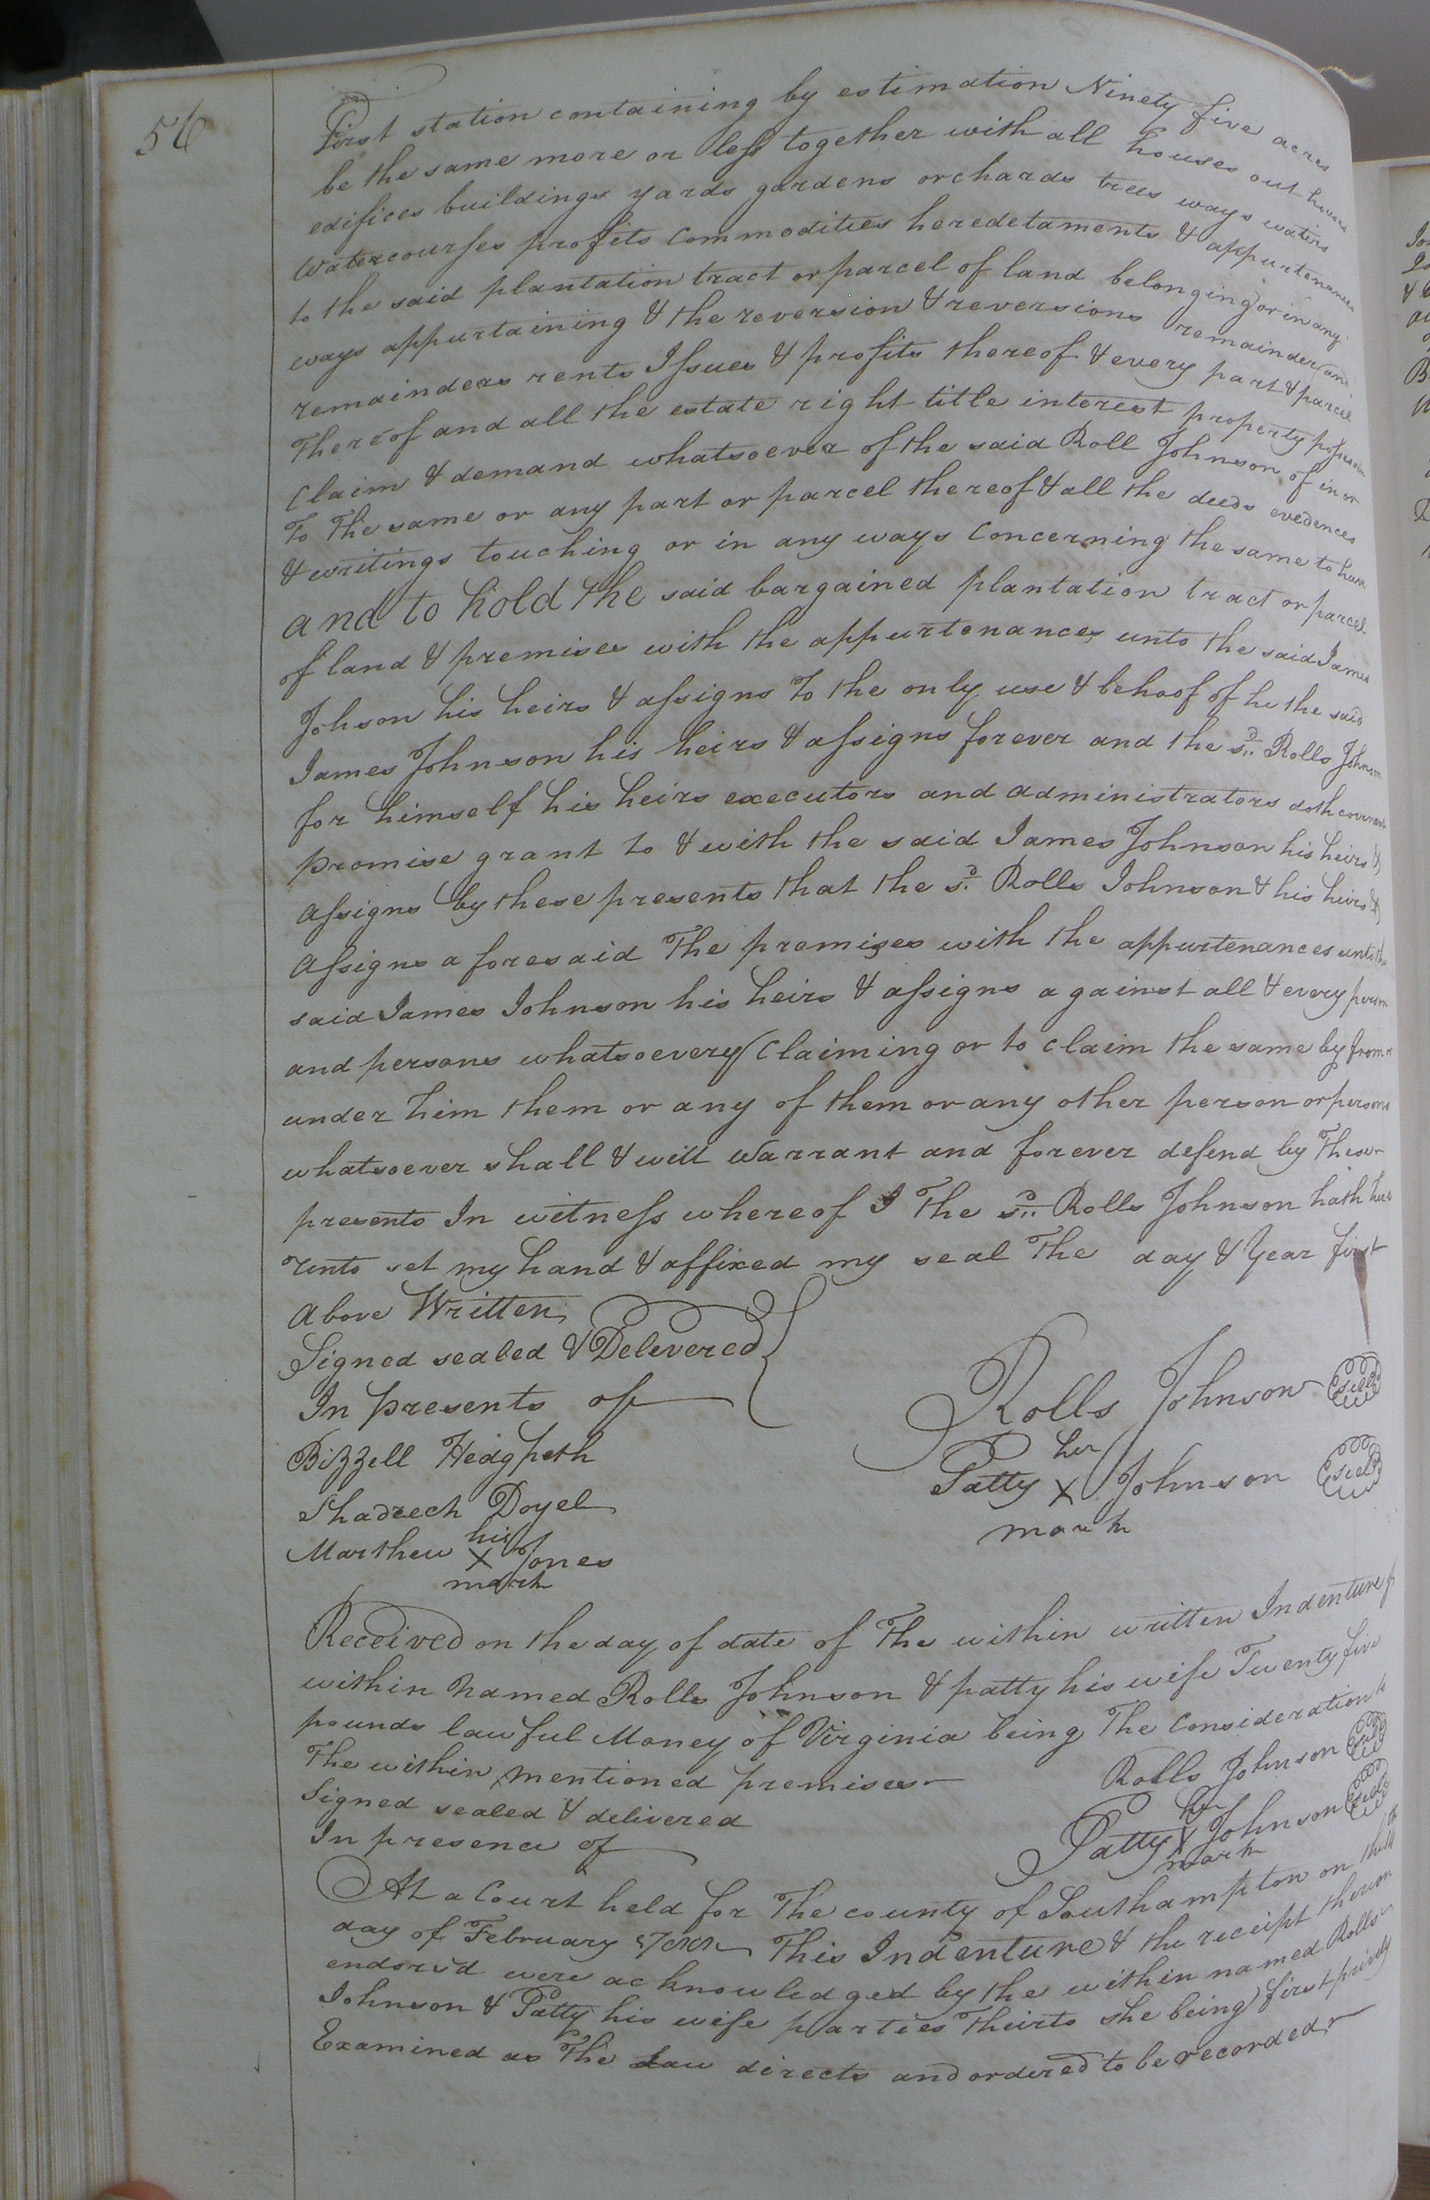 56
First station containing by estimation Ninety five acres
be the same more or less together with all houses out houses
edifices buildings yards gardens orchards trees ways waters
Watercourses profits Commodities heredetaments & appurtenances
to the said plantation tract or parcel of land belonging or in any
ways appurtaining & the reversion & reversions remainder and
remainders rents Issues & profits thereof & every part & parcel
Thereof and all the estate right title interest property possession
Claim & demand whatsoever of the said Roll Johnson of in or
To The same or any part or parcel thereof & all the deeds evedences
& writings touching or in any ways Concerning the same to have
and to hold the said bargained plantation tract or parcel
of land & premises with the appurtenances unto the said James
Johson his heirs & assigns To the only use & behoof of he the said
James Johnson his heirs & assigns forever and the sd. Rolls Johnson
for himself his heirs executors and administrators doth covenant
promise grant to & with the said James Johnson his heirs &
Assigns by these presents that the sd. Rolls Johnson & his heirs &
Assigns a foresaid The premises with the appurtenances unto the
said James Johnson his heirs & assigns against all & every person
and persons whatsoevery Claiming or to Claim the same by from or
under him them or any of them or any other person or persons
whatsoever shall & will Warrant and forever defend by These
presents In witness whereof I The sd. Rolls Johnson hath here
unto set my hand & affixed my seal The day & Year first
Above Written
Signed sealed & Delevered
In presents of
Rolls Johnson seal
Bizzell Hedgpeth
her
Patty X Johnson seal
mark
Shadrech Doyel
his
Marthew X Jones
mark
Received on the day of date of The within written Indenture
within Named Rolls Johnson & patty his wife Twenty five
pounds lawful Money of Virginia being The Consideration
The within mentioned premises
Rolls Johnson seal
Signed sealed & delivered
her
Patty X Johnson seal
mark
In presence of
At a Court held for The county of Southampton on the
day of February This Indenture & the receipt thereon
endors'd were acknowledged by the within named Rolls
Johnson & Patty his wife parties Theirto she being first privily
Examined as The Law directs and ordered to be recorded